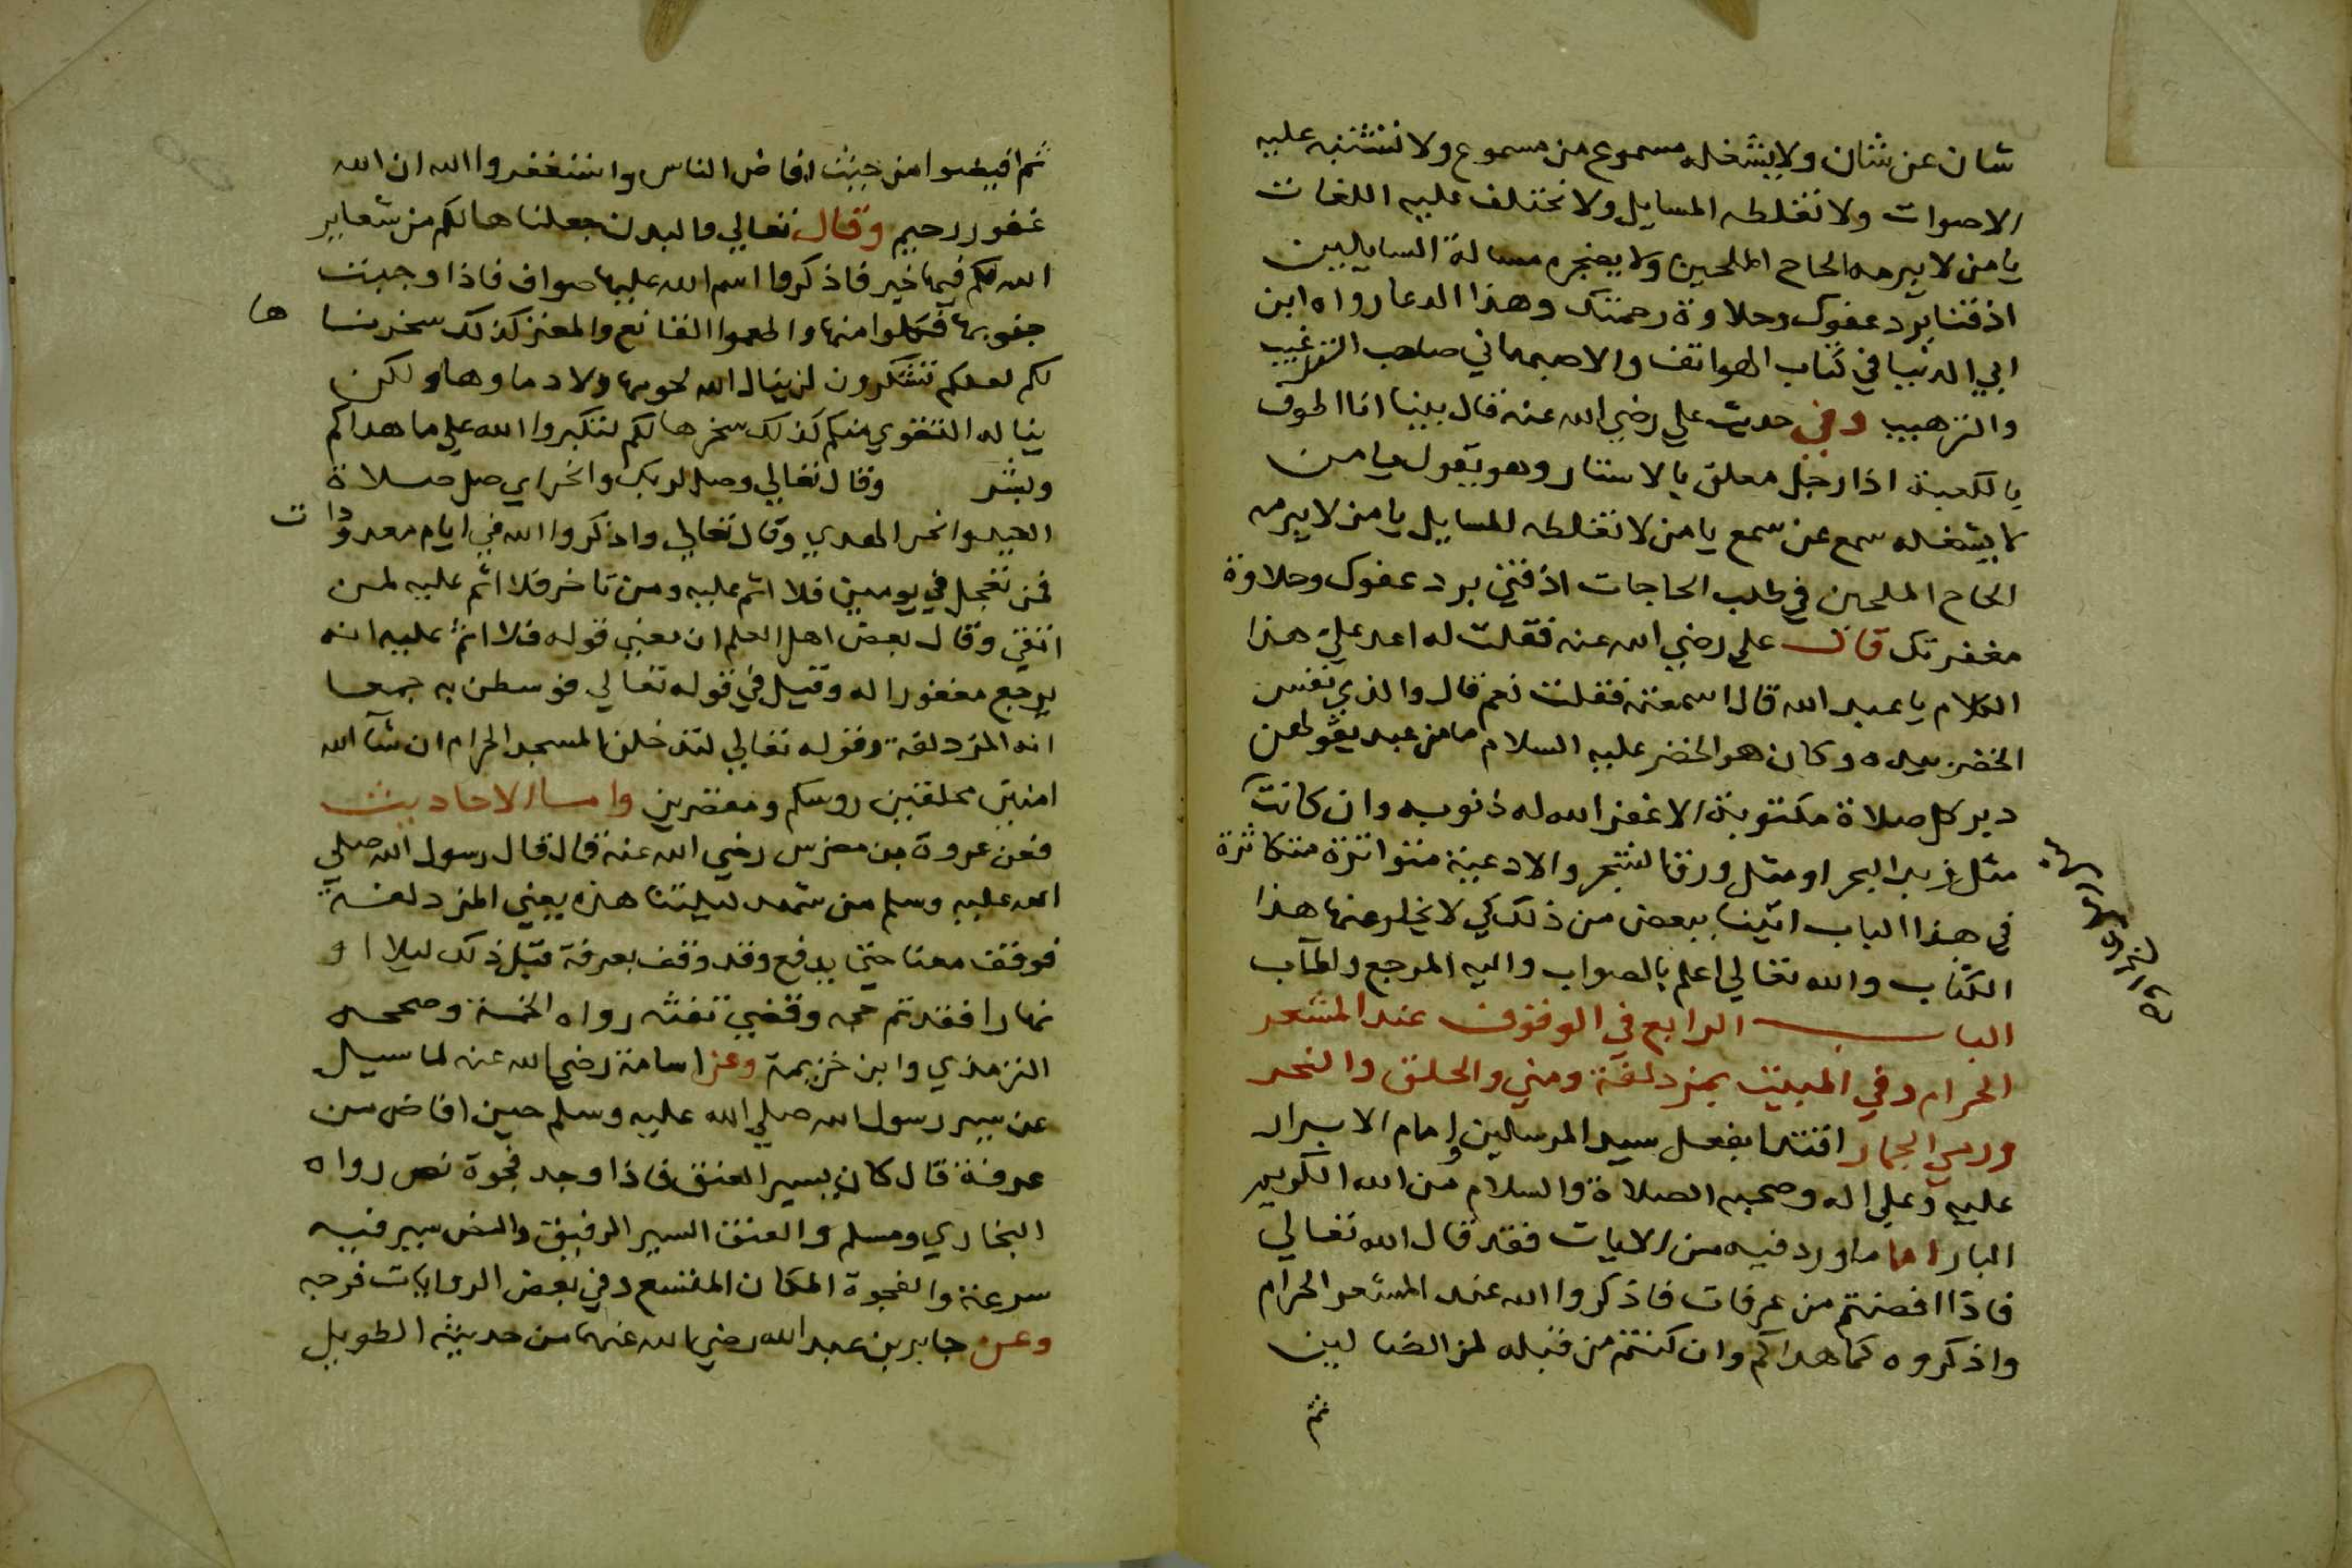 شان عن شان ولا يشغله مسموع من مسموع ولا تشتبه عليه
الاصوات ولا تغلطه المسايل ولا تختلف عليه اللغات
يا من لا يبرمه الحاح الملحين ولا يضجره مسالة السايلين
اذقنا برد عفوك وحلاوة رحمتك وهذا الدعا رواه ابن
ابي الدنيا في كتاب الهواتف والاصبهاني صاحب الترغيب
والترهيب وفي حديث علي رضي الله عنه قال بينا انا اطوف
بالكعبة اذا رجل معلق بالاستار وهو يقول يا من
لا يشغله سمع عن سمع يا من لا تغلطه المسايل يا من لا يبرمه
الحاح الملحين في طلب الحاجات اذقني برد عفوك وحلاوة
مغفرتك قال علي رضي الله عنه فقلت له اعد علي هذا
الكلام يا عبد الله قال اسمعته فقلت نعم قال والذي نفس
الخضر بيده وكان هو الخضر عليه السلام ما من عبد يقولهن
دبر كل صلاة مكتوبة الا غفر الله له ذنوبه وان كانت
مثل زبد البحر او مثل ورق الشجر والادعية متواترة متكاثرة
في هذا الباب اتينا ببعض من ذلك كي لا يخلو عنها هذا
الكتاب والله تعالي اعلم بالصواب واليه المرجع والمآب
الباب الرابع في الوقوف عند المشعر
الحرام وفي المبيت بمزدلفة ومني والحلق والنحر
ورمي الجمار اقتدا بفعل سيد المرسلين وامام الابرار
عليه وعلي اله وصحبه الصلاة والسلام من الله الكريم
البار اما ما ورد فيه من الايات فقد قال الله تعالي
فاذا افضتم من عرفات فاذكروا الله عند المشعر الحرام
واذكروه كما هداكم وان كنتم من قبله لمن الضالين
ثم
ثم افيضوا من حيث افاض الناس واستغفروا الله ان الله
غفور رحيم وقال تعالي والبدن جعلناها لكم من شعاير
الله لكم فيها خير فاذكروا اسم الله عليها صواف فاذا وجبت
جنوبها فكلوا منها واطعموا القانع والمعتر كذلك سخرنا
ها
لكم لعلكم تشكرون لن ينال الله لحومها ولا دماوها ولكن
يناله التقوي منكم كذلك سخرها لكم لتكبروا الله علي ما هداكم
وبشر وقال تعالي وصل لربك وانحر اي صل صلاة
العيد وانحر الهدي وقال تعالي واذكروا الله في ايام معدودات
فمن تعجل في يومين فلا اثم عليه ومن تاخر فلا اثم عليه لمن
اتقي وقال بعض اهل العلم ان معني قوله فلا اثم عليه انه
يرجع مغفورا له وقيل في قوله تعالي فوسطن به جمعا
انه المزدلفة وقوله تعالي لتدخلن المسجد الحرام ان شآ الله
امنين محلقين روسكم ومقصرين واما الاحاديث
فعن عروة بن مضرس رضي الله عنه قال قال رسول الله صلي
الله عليه وسلم من شهد ليلتنا هذه يعني المزدلفة
فوقف معنا حتي يدفع وقد وقف بعرفة قبل ذلك ليلا او
نهارا فقد تم حجه وقضي تفثه رواه الخمسة وصححه
الترمذي وابن خزيمة وعن اسامة رضي الله عنه لما سيل
عن سير رسول الله صلي الله عليه وسلم حين افاض من
عرفة قال كان يسير العنق فاذا وجد فجوة نص رواه
البخاري ومسلم والعنق السير الرفيق والنص سير فيه
سرعة والفجوة المكان المتسع وفي بعض الروايات فرجه
وعن جابر بن عبد الله رضي الله عنهما من حديثه الطويل